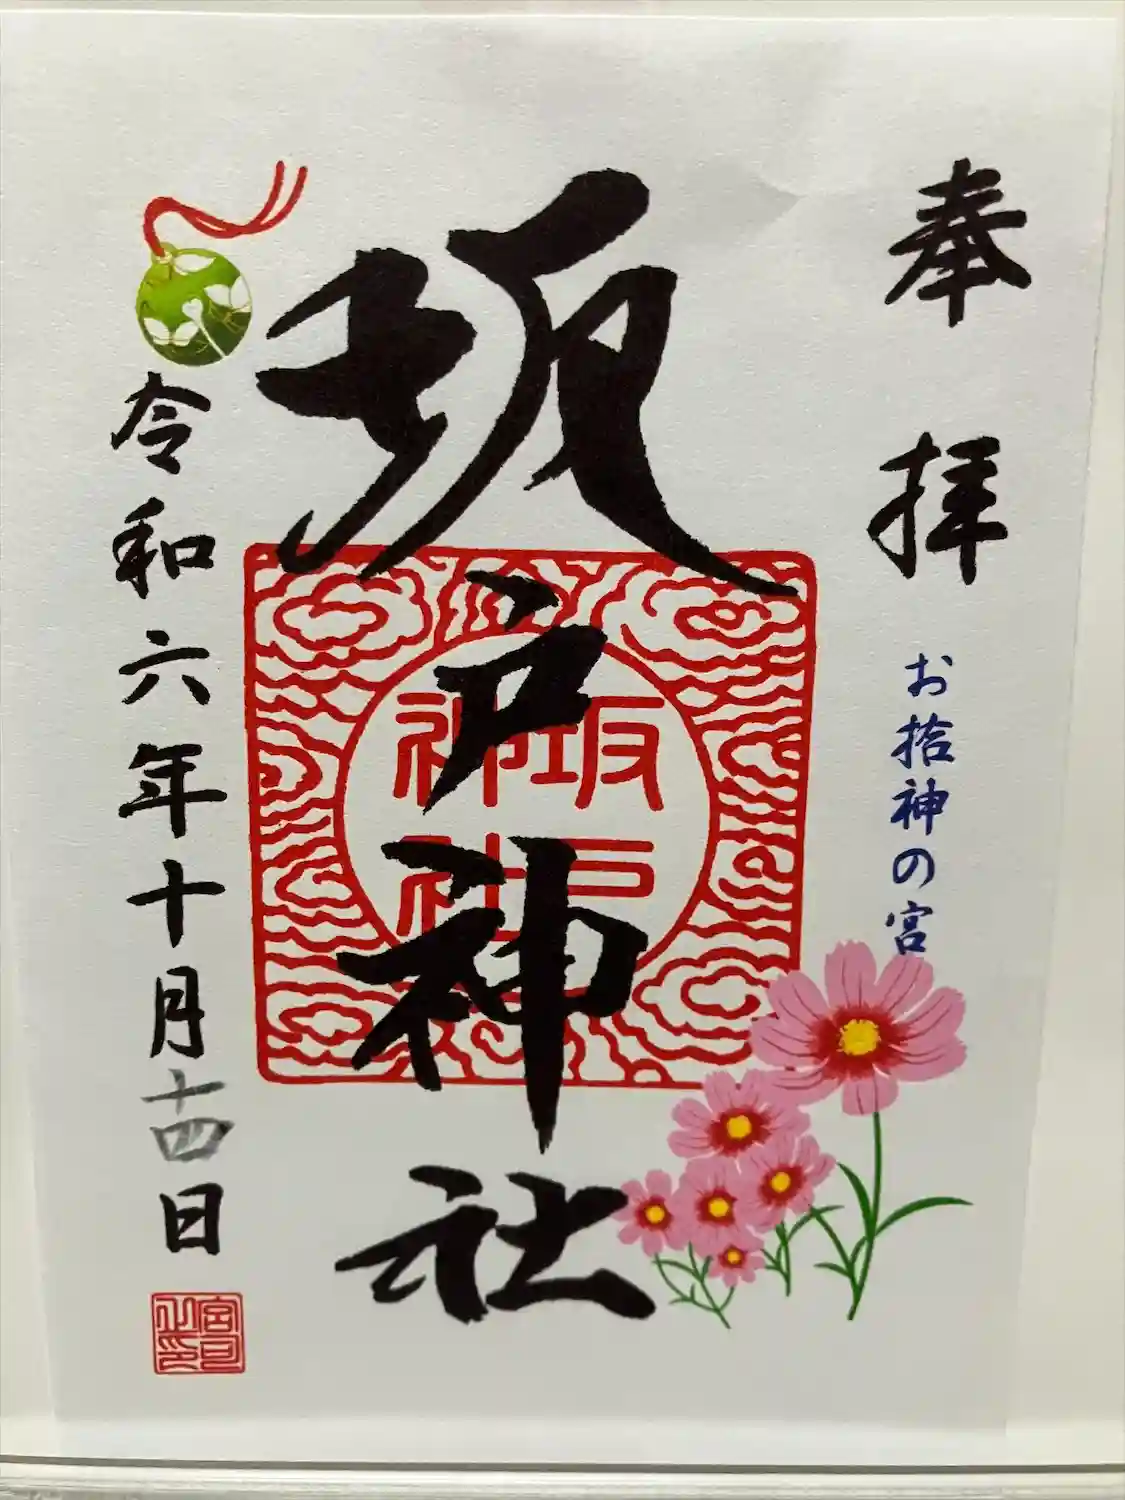 奉拝
お捨神の宮
坂戸神社
坂戸
神社
令和六年十月十四日
宮司
之印